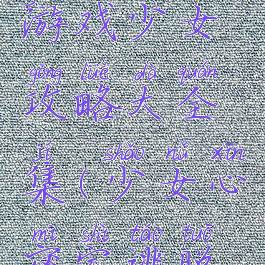 游戏少女
gōng lüè dà quán
攻略大全
jí shào nǚ xīn
集(少女心
mì shì táo tuō
密室逃脱